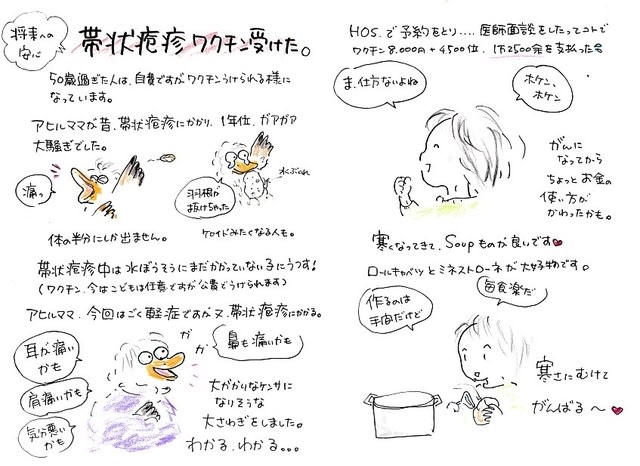 将来への
安心
帯状疱疹ワクチン受けた。
50歳過ぎた人は、自費ですがワクチンうけられる様に
なっています。
アヒルママが昔、帯状疱疹にかかり、1年位、ガアガア
大騒ぎでした。
痛っ
羽根が
抜けちゃった
水ぶくれ
体の半分にしか出ません。
ケロイドみたくなる人も。
帯状疱疹中は水ぼうそうにまだかかっていない子にうつす!
(ワクチン、今はこどもは任意ですが公費でうけられます)
アヒルママ、今回はごく軽症ですが又、帯状疱疹にかかる。
耳が痛い
かも
肩痛いかも
気分悪い
かも
ガ
ガ
鼻も痛いかも
大がかりなケンサに
なりそうな
大さわぎをしました。
わかる、わかる...
HOS.で予約をとり....医師面談をしたってコトで
ワクチン8.000円+4500位、1万2500発を支払った
ま、仕方ないよね
ホケン、
ホケン
がんに
なってから
ちょっとお金の
使い方が
かわったかも。
寒くなってきて、Soupものが良いです♥
ロールキャベツとミネストローネが大好物です。
作るのは
手間だけど
毎食楽だ
寒さにむけて
がんばる〜♥